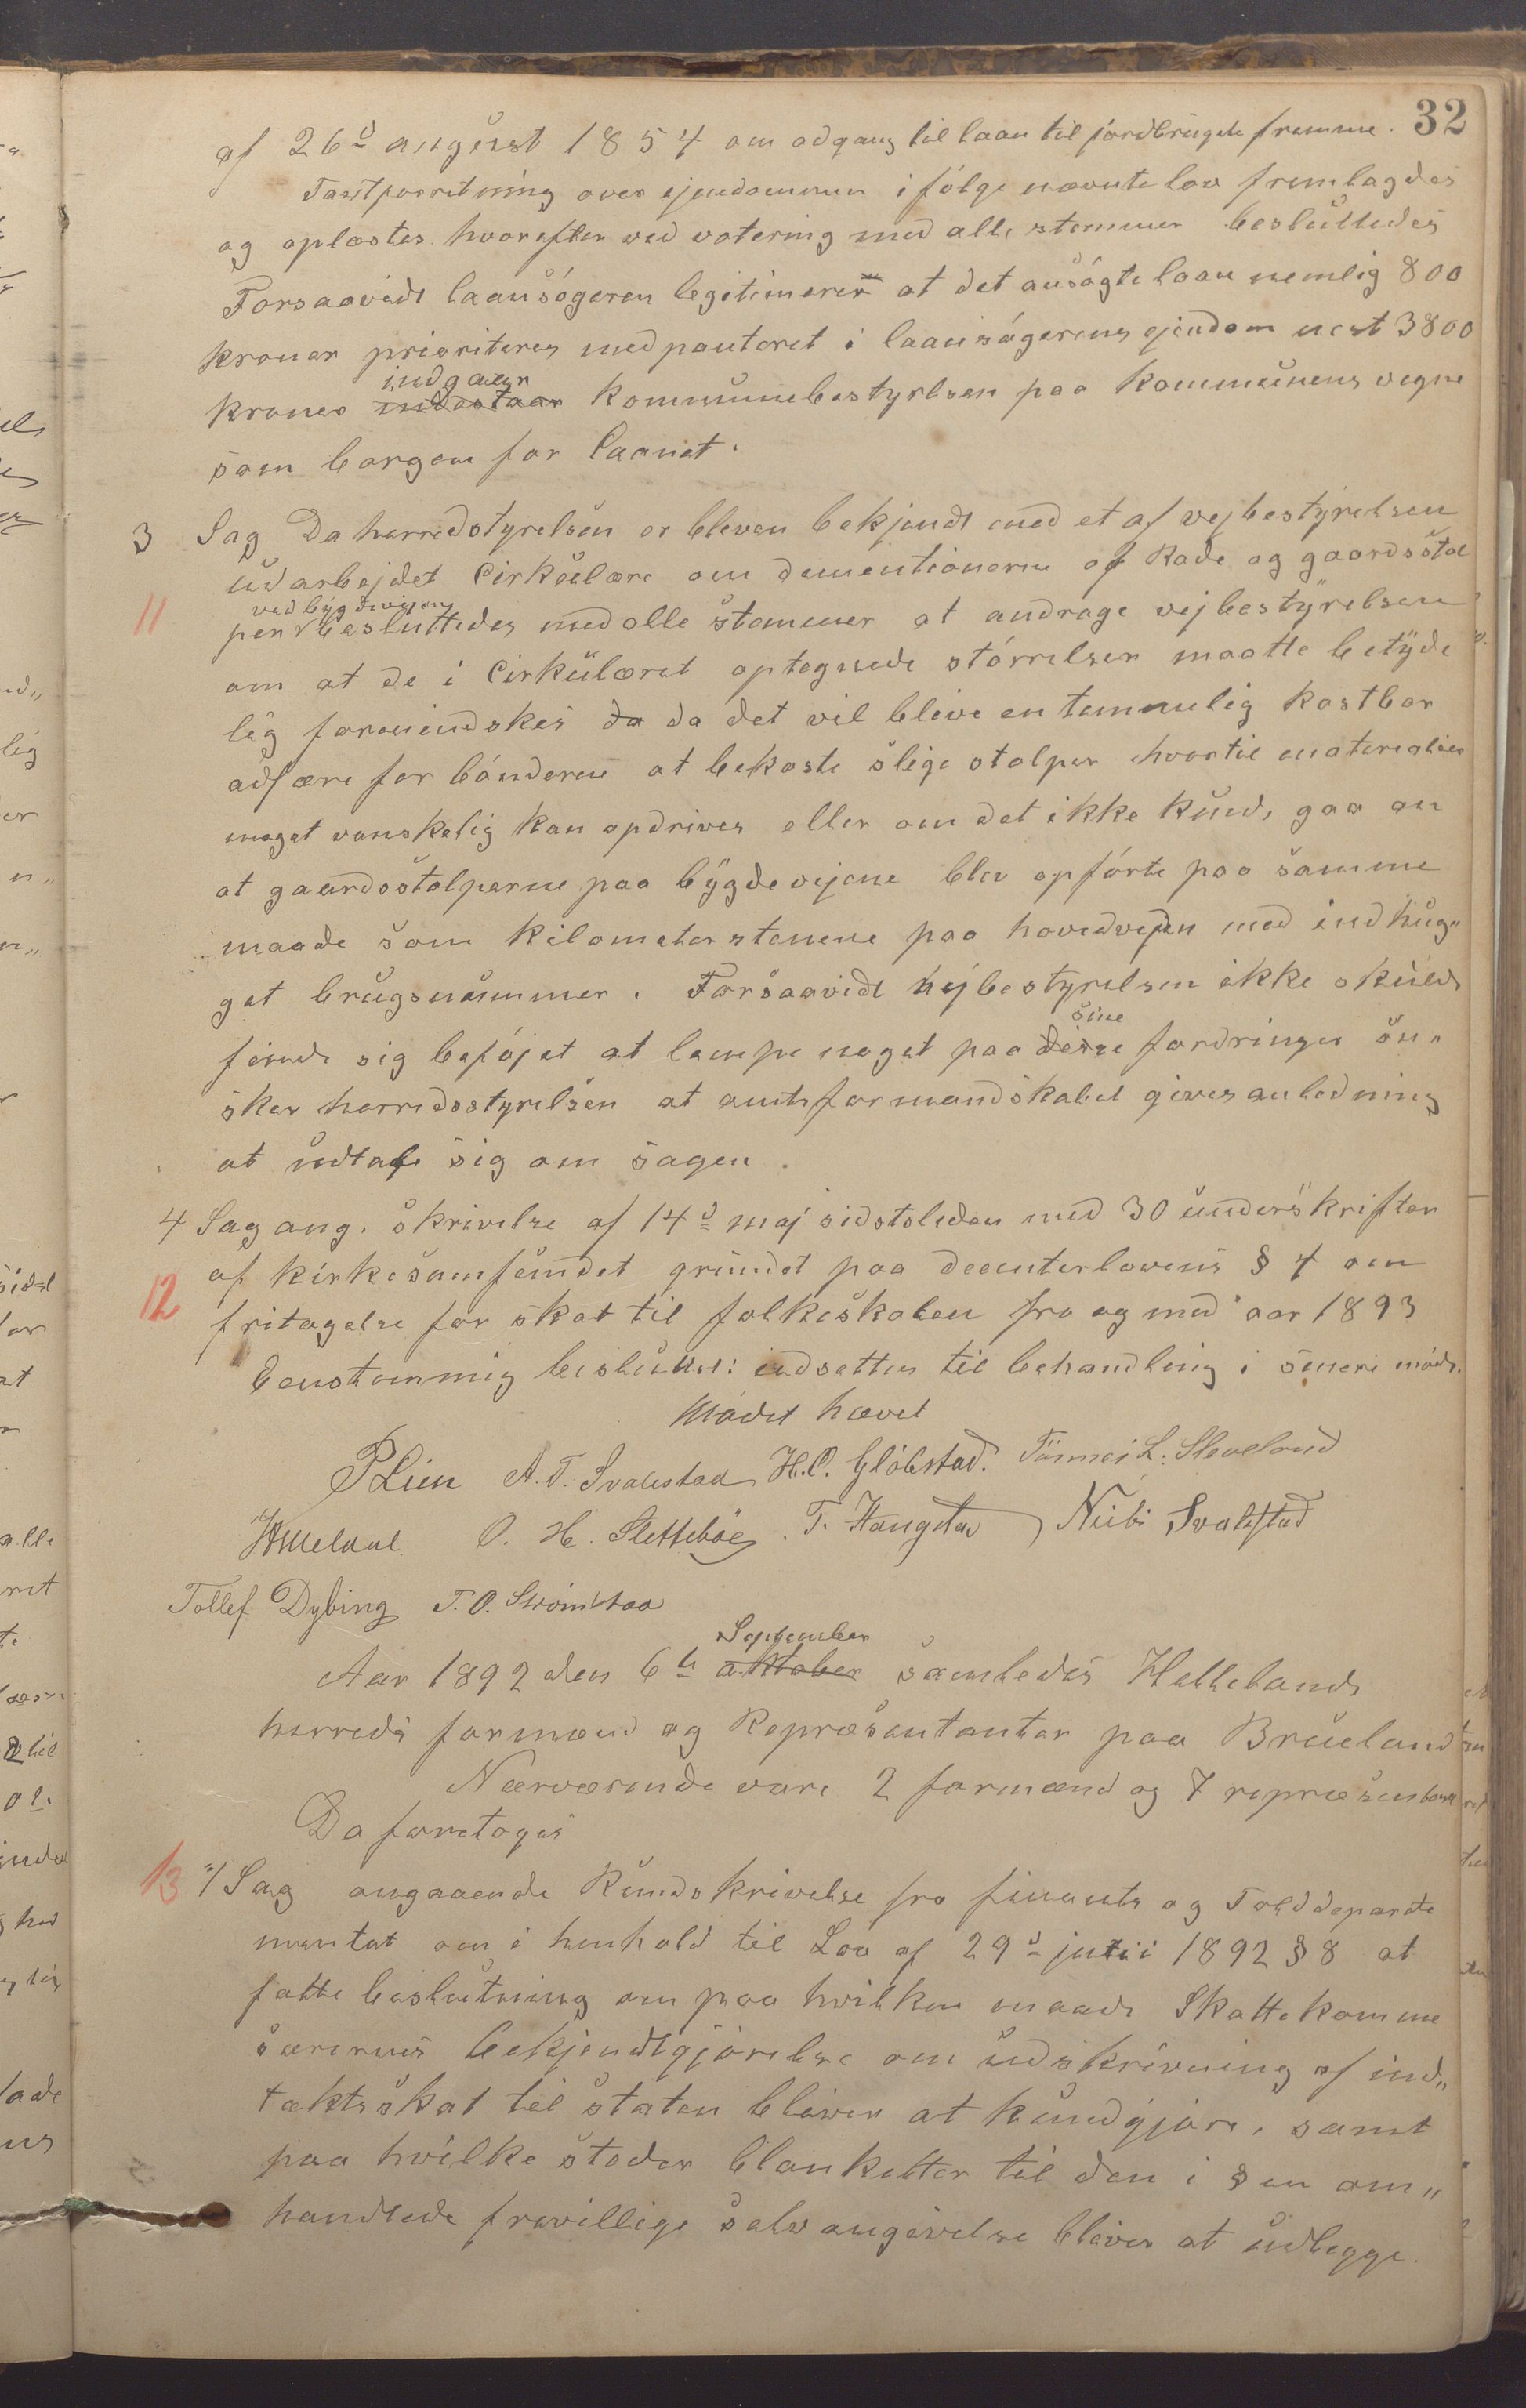 32
af 26d august 1854 om adgang til laan til jordbrugets fremme.
Taxtforretning over ejendommen ifölge nævnte lov fremlagdes
og oplæstes hvorefter ved votering med alle stemmer besluttedes
Forsaavidt laansögeren legitimerer at det ansögte laan nemlig 800
kroner prioriteres med panteret i laansögerens ejendom nest 3800
indgaar
kroner indestaar kommunebestyrelsen paa kommunens vegne
som borgen for laanet.
3 Sag Da herredstyrelsen er bleven bekjendt med et af vejbestyrelsen
udarbejdet Cirkulære om dementionerne af Rode og gaardsstol
ved bygdevejen
11 per besluttedes med alle stemmer at andrage vejbestyrelsen
om at de i Cirkulæret optegnede störrelser maatte betyde
lig formindskes da da det vil blive en temmelig kostbar
adfære for bönderne at bekoste slige stolper hvortil materialier
meget vanskelig kan opdrives eller om det ikke kunde gaa an
at gaardsstolperne paa bygdevejene blev opförte paa samme
maade som kilometerstenene paa hovedvejen med indhug"
get brugsnummer. Forsaavidt vejbestyrelsen ikke skulde
sine
finde sig beföjet at lempe noget paa disse fordringer ön"
sker herredsstyrelsen at amtsformandskabet gives anledning
at udtale sig om sagen.
4 Sag ang. skrivelse af 14d maj sidstleden med 30 underskrifter
af kirkesamfundet grundet paa decenterlovens § 4 om
12 fritagelse for skat til folkeskolen fra og med aar 1893
Eenstemmig besluttet: udsettes til behandling i senere möde.
Mödet hævet
P Lien A. T. Svalestad H.O. Glöbstad. Tönnes L. Sleveland
O. H. Slettebö T. Haugstad Svalestad
Tollef Dybing T. O. Strömstad
September
Aar 1892 den 6te oktober samledes Hellelands
herreds formænd og Repræsentanter paa Brueland
Nærværende vare 2 formænd og 7 repræsentanter
Da foretoges
13 1/ Sag angaaende Rundskrivelse fra finants og Tolddeparte
mentet om i henhold til Lov af 29d juni 1892 § 8 at
fatte beslutning om paa hvilken maade Skattekomme
særernes bekjendtgjörelse om udskrivning af ind"
tektsskat til staten bliver at kundgjöre, samt
paa hvilke steder blanketter til den i § en om"
handlede frivillige selvangivelse bliver at udlegge.